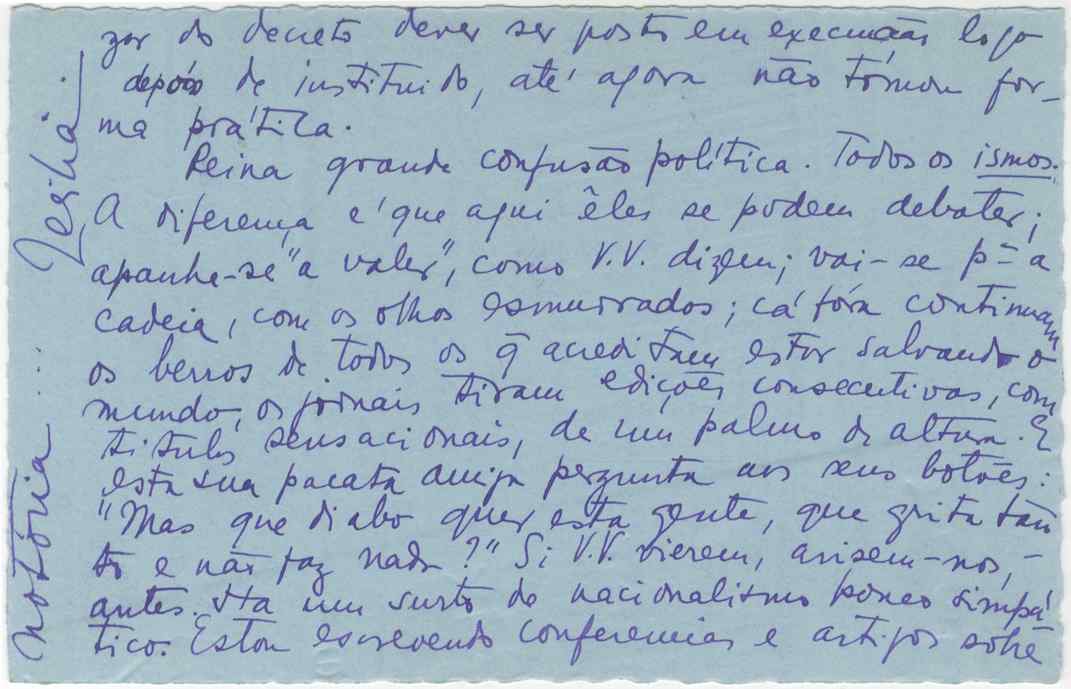 zar do decreto dever ser posto em execução logo
depois de instituido, até agora não tomou for-
ma prática.
Reina grande confusão política. Todos os ismos.
A diferença é que aqui êles se podem debater;
apanha-se "a valer", como V.V. dizem; vai-se pª a
cadeia, com os olhos esmurrados; cá fóra continuam
os berros de todos os q̄ acreditam estar salvando o
mundo, os jornais tiram edições consecutivas, com
titulos sensacionais, de um palmo de altura. E
esta sua pacata amiga pergunta aos seus botões:
"Mas que diabo quer esta gente, que grita tan
to e não faz nada?" Si V.V. vierem, avisem-nos,-
antes. Ha um surto de nacionalismo pouco simpá
tico. Estou escrevendo conferencias e artigos sôbre
notória ...